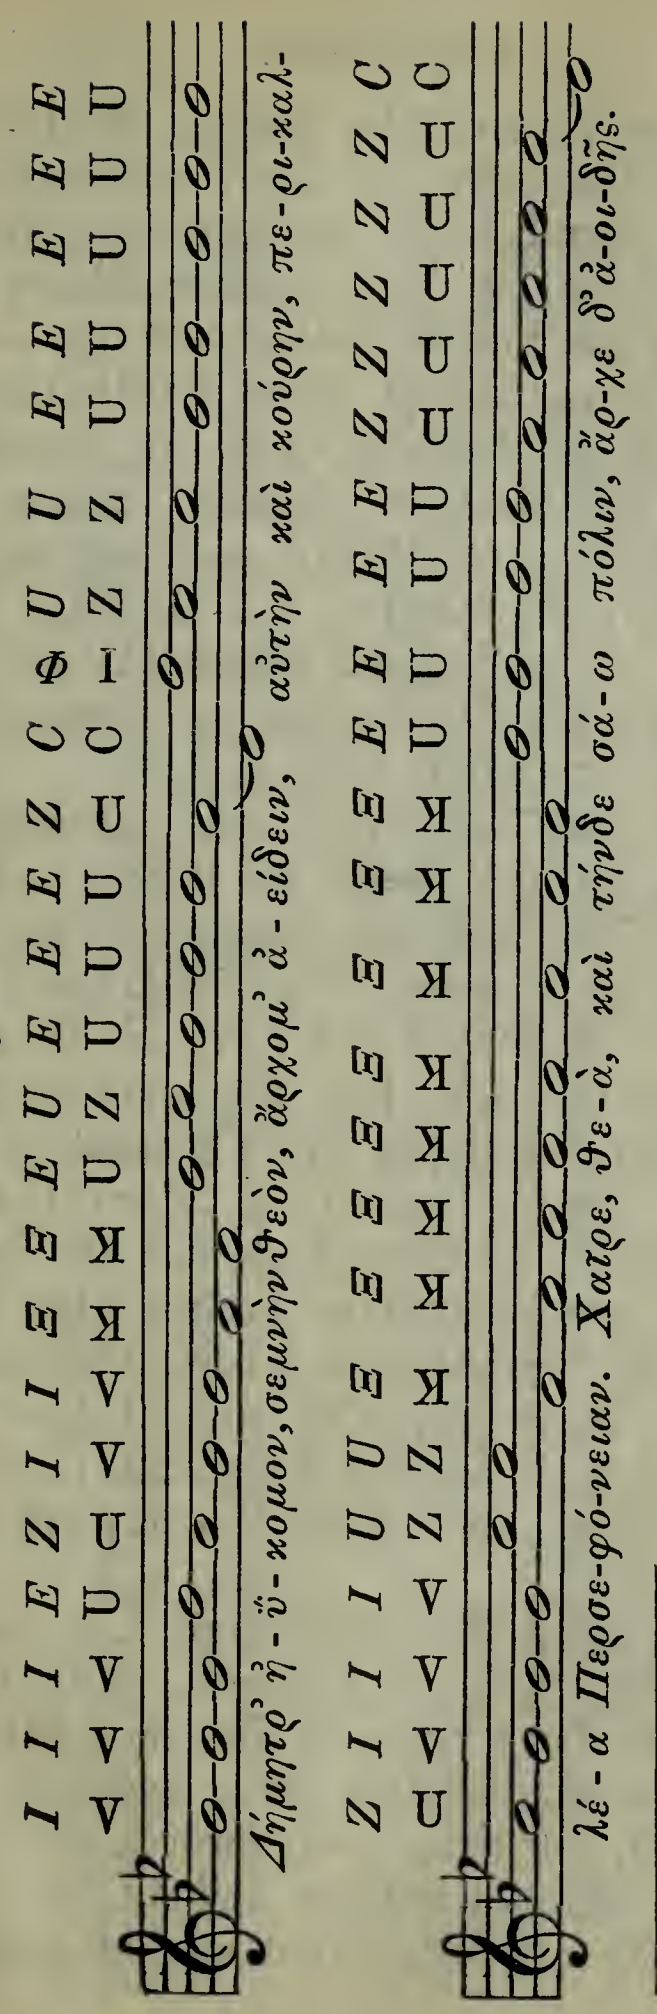 I I I E Z I I Ξ Ξ E U E E E Z C Φ U U E E E E E
< < < U ⊏ < < ꓘ ꓘ U Z U U U ⊏ C I Z Z U U U U U
Δήμητρ᾽ ἠ-ΰ-κομον, σεμνὴν θεὸν, ἄρχομ᾽ ἀ-είδειν, αὐτὴν καὶ κούρην, πε-ρι-καλ-
Z I I I U U Ξ Ξ Ξ Ξ Ξ Ξ Ξ Ξ E E E E Z Z Z Z Z C
⊏ < < < Z Z ꓘ ꓘ ꓘ ꓘ ꓘ ꓘ ꓘ ꓘ U U U U ⊏ ⊏ ⊏ ⊏ ⊏ C
λέ-α Περσε-φό-νειαν. Χαῖρε, θε-ὰ, καὶ τήνδε σά-ω πόλιν, ἄρ-χε δ᾽ ἀ-οι-δῆς.